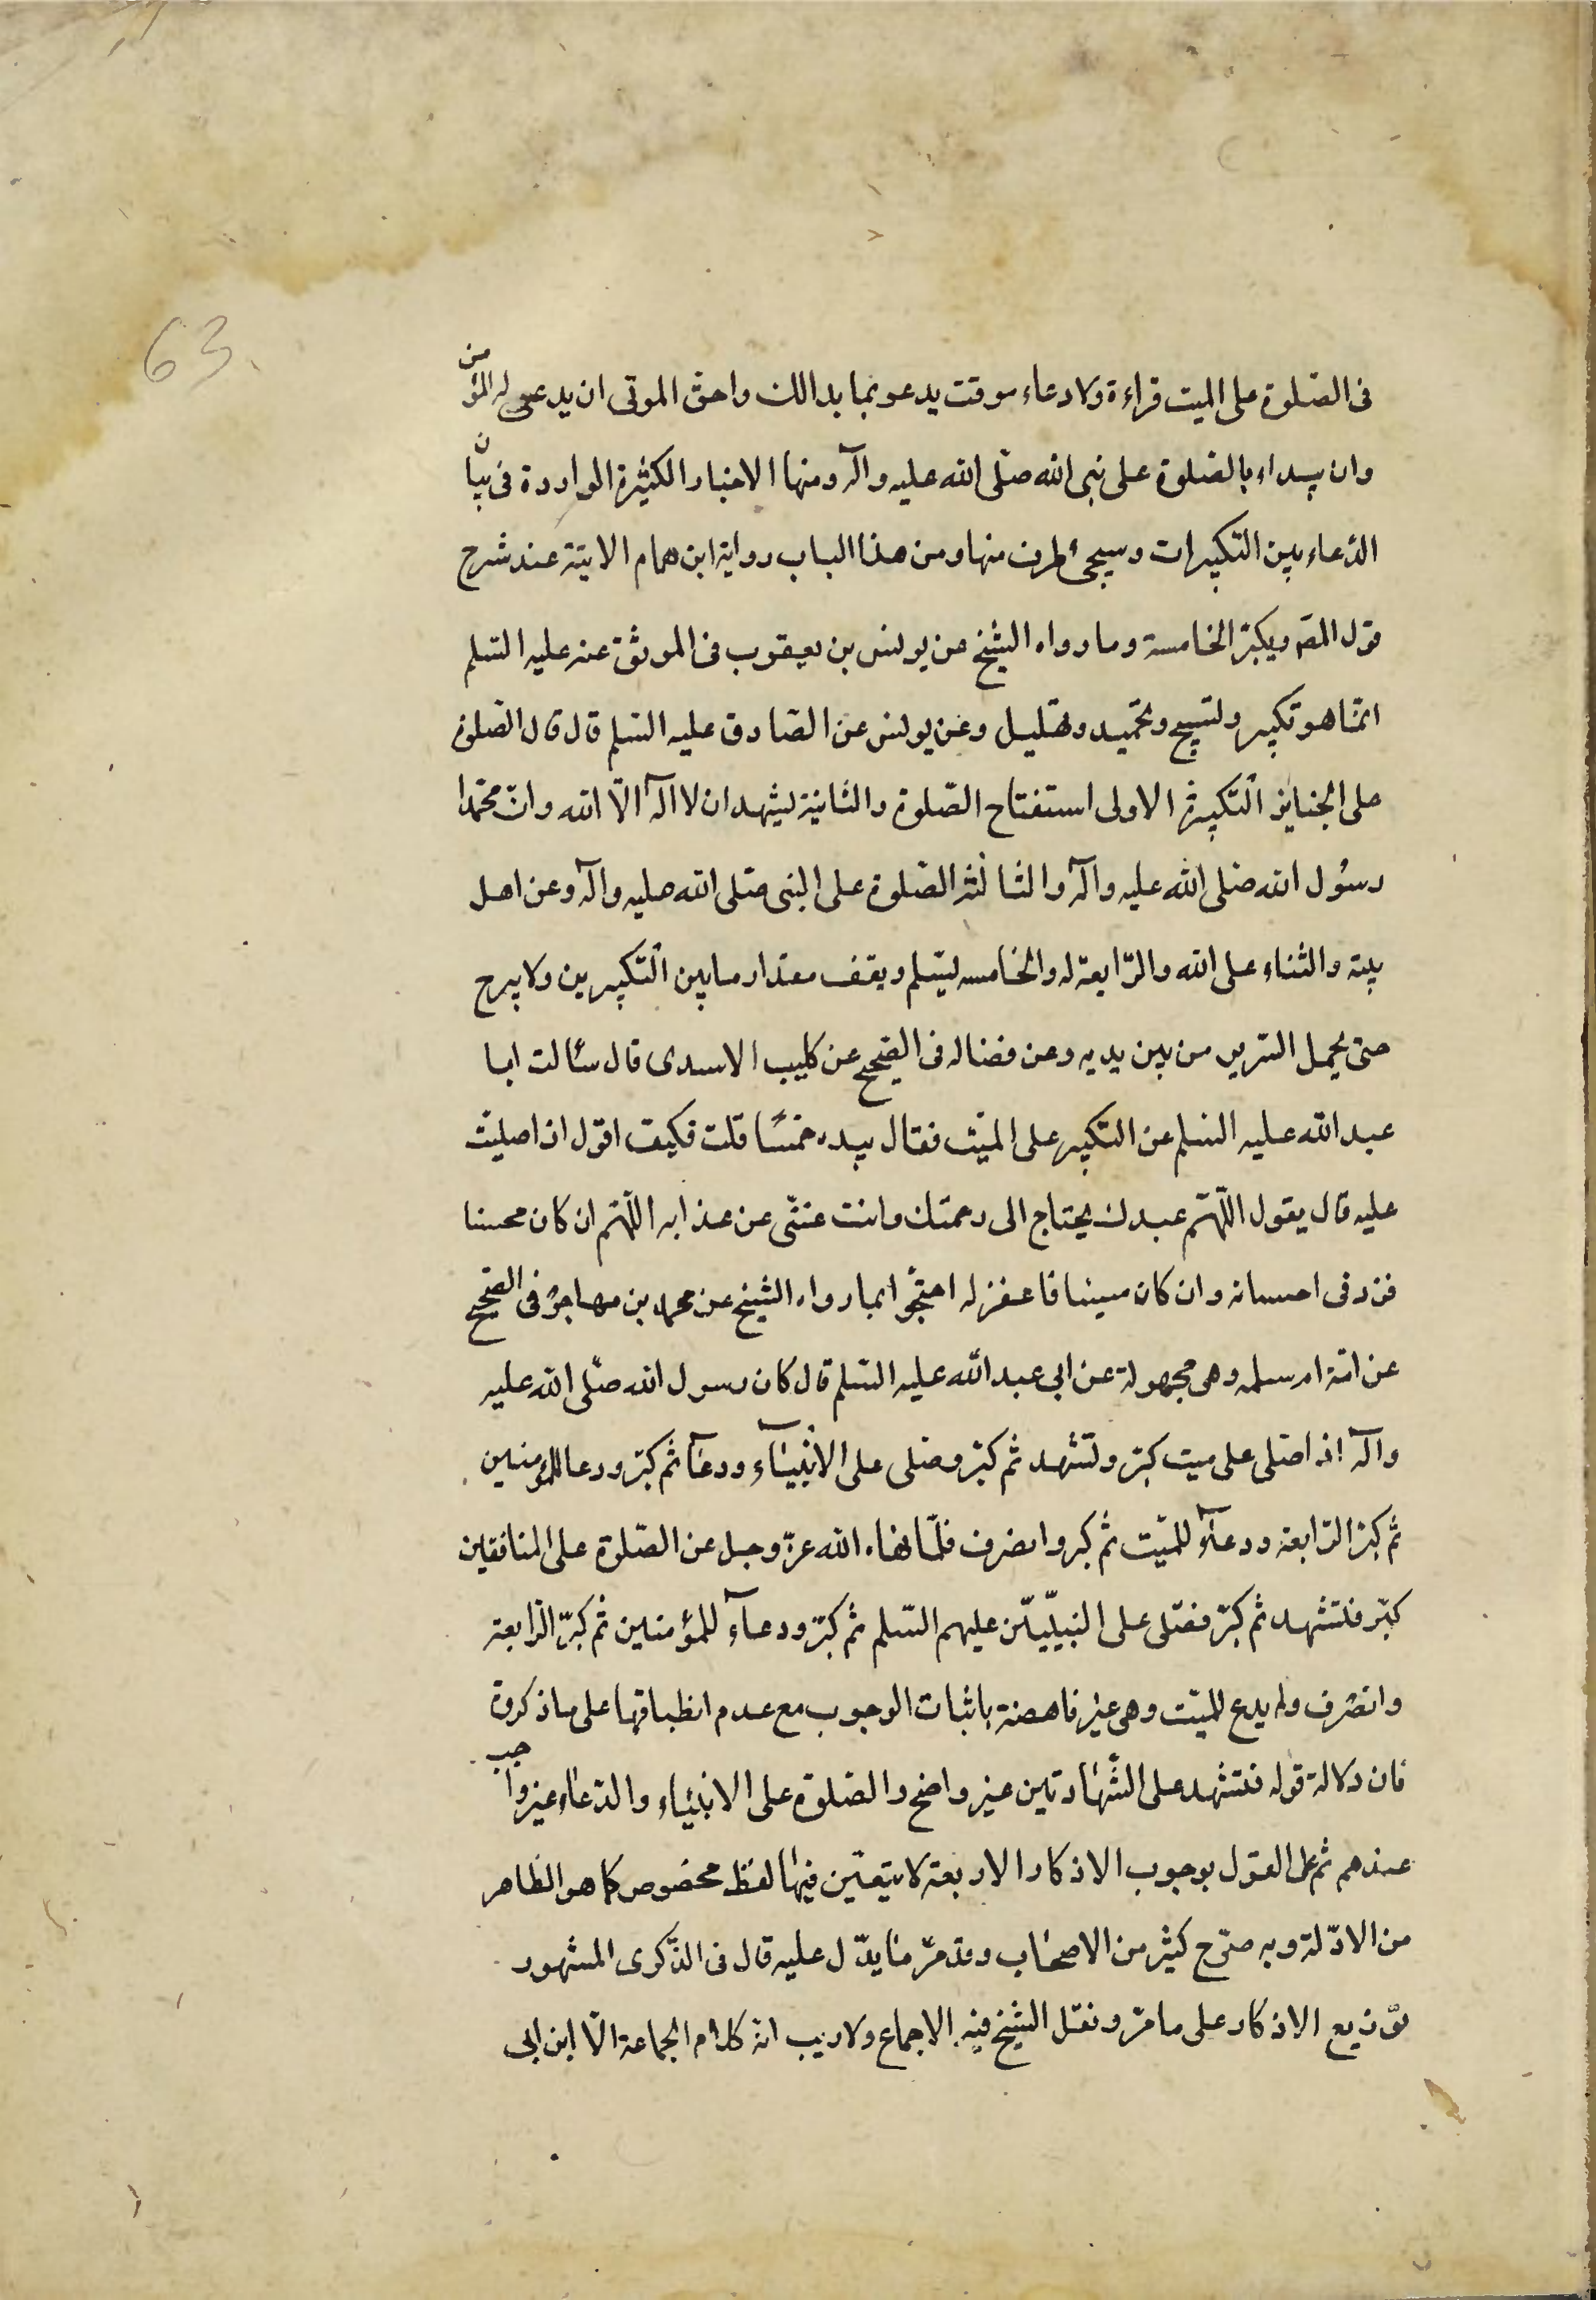 63
فى الصّلوة على الميت قراءة ولا دعاء موقت يدعو بما بدالك واحق الموتى ان يدعى له المؤمن
وان يبداء بالصّلوة على نبى الله صلّى الله عليه وآله ومنها الاخبار الكثيرة الواردة فى بيان
الدّعاء بين التكبيرات وسيجئ طرف منها ومن هذا الباب رواية ابن همام الاتية عند شرح
قول المصَ ويكبرّ الخامسة وما رواه الشيخ عن يونس بن يعقوب فى الموثق عنه عليه السّلم
انّما هو تكبير وتسبيح وتحميد وتهليل وعن يونس عن الصّادق عليه السّلم قال قال الصّلوة
على الجنايز التّكبيرة الاولى استفتاح الصّلوة والثانية ليشهد ان لا اله الّا الله وانّ محمّدا
رسُول الله صلى الله عليه وآله والثالثة الصّلوة على النبى صلى الله عليه وآله وعن اهل
بيته والثناء على الله والرّابعة له والخامسه ليسّلم ويقف مقدار ما بين التّكبيرين ولا يبرح
حتى يحمل السّرير من بين يديه وعن فضاله فى الصّحيح عن كليب الاسدى قال سئالت ابا
عبد الله عليه السّلم عن التكبير على الميّت فقال بيده خمسًا قلت فكيف اقول اذا صليت
عليه قال يقول اللّهمّ عبدك يحتاج الى رحمتك وانت غنىّ عن عذابه اللّهمّ ان كان محسنا
فزد فى احسانه وان كان مسيئا فاغفر له احتجّوا بما رواه الشيخ عن محمد بن مهاجر فى الصّحيح
عن امّة ام سلمه وهى مجهولة عن ابى عبد الله عليه السّلم قال كان رسول الله صلّى الله عليه
وآله اذا صّلى على ميت كبرّ وتشهد ثم كبرّ وصّلى على الانبياء ودعآ ثم كبرّ ودعا للمؤمنين
ثم كبرّ الرّابعة ودعآء للميّت ثم كبر وانصرف فلمّا نهاه الله عزّ وجل عن الصّلوة على المنافقين
كبّر فتشهد ثم كبرّ فصّلى على النبيّين عليهم السّلم ثم كبرّ ودعآء للمؤمنين ثم كبرّ الرّابعة
وانصرف ولم يدع للميّت وهى غير ناهضة باثبات الوجوب مع عدم انطباقها على ما ذكروة
فان دلالة قوله فتشهد على الشّهادتين غير واضح والصّلوة على الانبياء والدّعاء غير واجب
عندهم ثم على القول بوجوب الاذكار الاربعة لا يتعيّن فيها لفظ مخصوص كما هو الظاهر
من الادّلة وبه صرّح كثير من الاصحاب وقد مرّ ما يدّل عليه قال فى الذّكرى المشهور
توزيع الاذكار على ما مرّ ونقل الشيخ فيه الاجماع ولا ريب انّه كلام الجماعة الّا ابن ابى